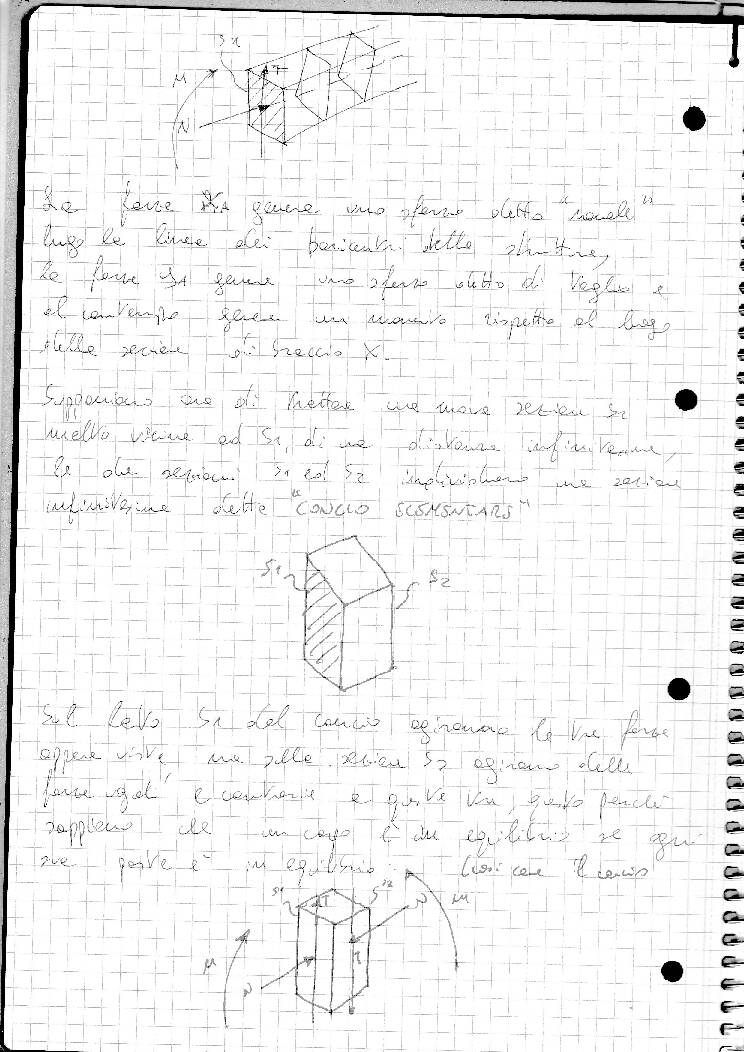 S1
T
M
N
La forza genera uno sforzo detto "normale"
lungo la linea dei baricentri della struttura,
la forza genera uno sforzo detto di taglio e
al contempo genera un momento rispetto al luogo
della sezione di braccio X.
Supponiamo ora di trattare una nuova sezione S2
molto vicina ad S1, di una distanza infinitesima,
le due sezioni S1 ed S2 individuano una sezione
infinitesima detta "CONCIO ELEMENTARE"
S1 S2
Sul lato S1 del concio agiranno le tre forze
appena viste, ma sulla sezione S2 agiranno delle
forze uguali e contrarie a queste tre, questo perché
sappiamo che un corpo è in equilibrio se ogni
sua parte è in equilibrio. Così come il concio
S1 T S2 N M
M T
N